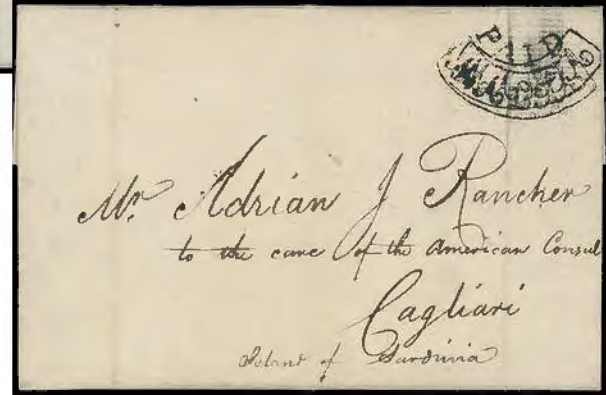 PAID
Mr. Adrian J Rancher
to the care of the American Consul
Cagliari
Island of Sardinia